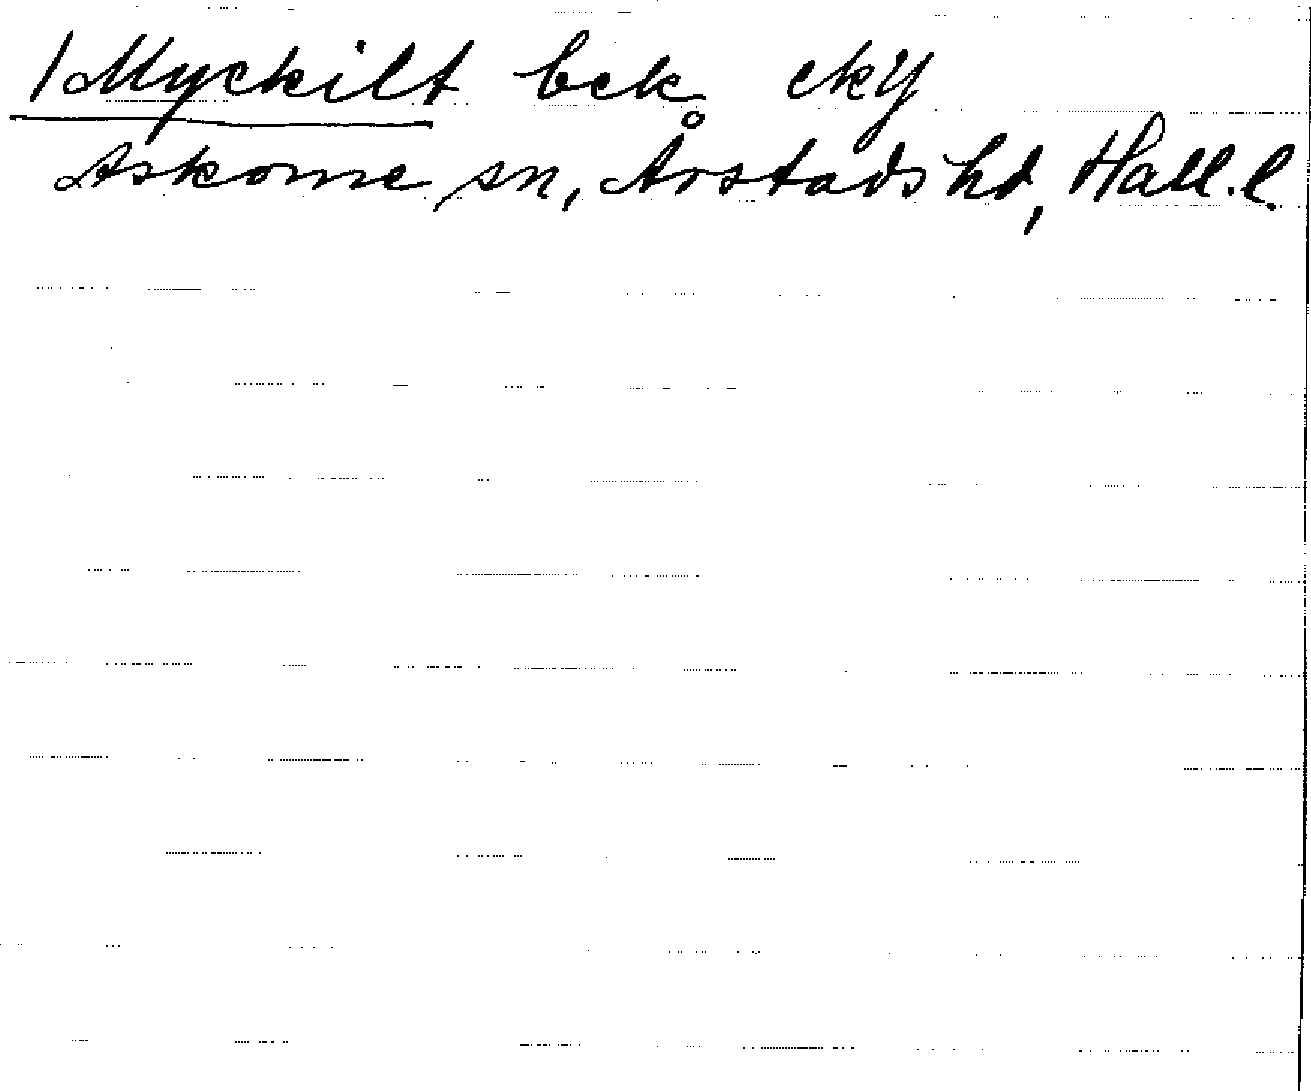 /Myckilt bek. eky
Askome sn, Årstads hd, Hall. l.